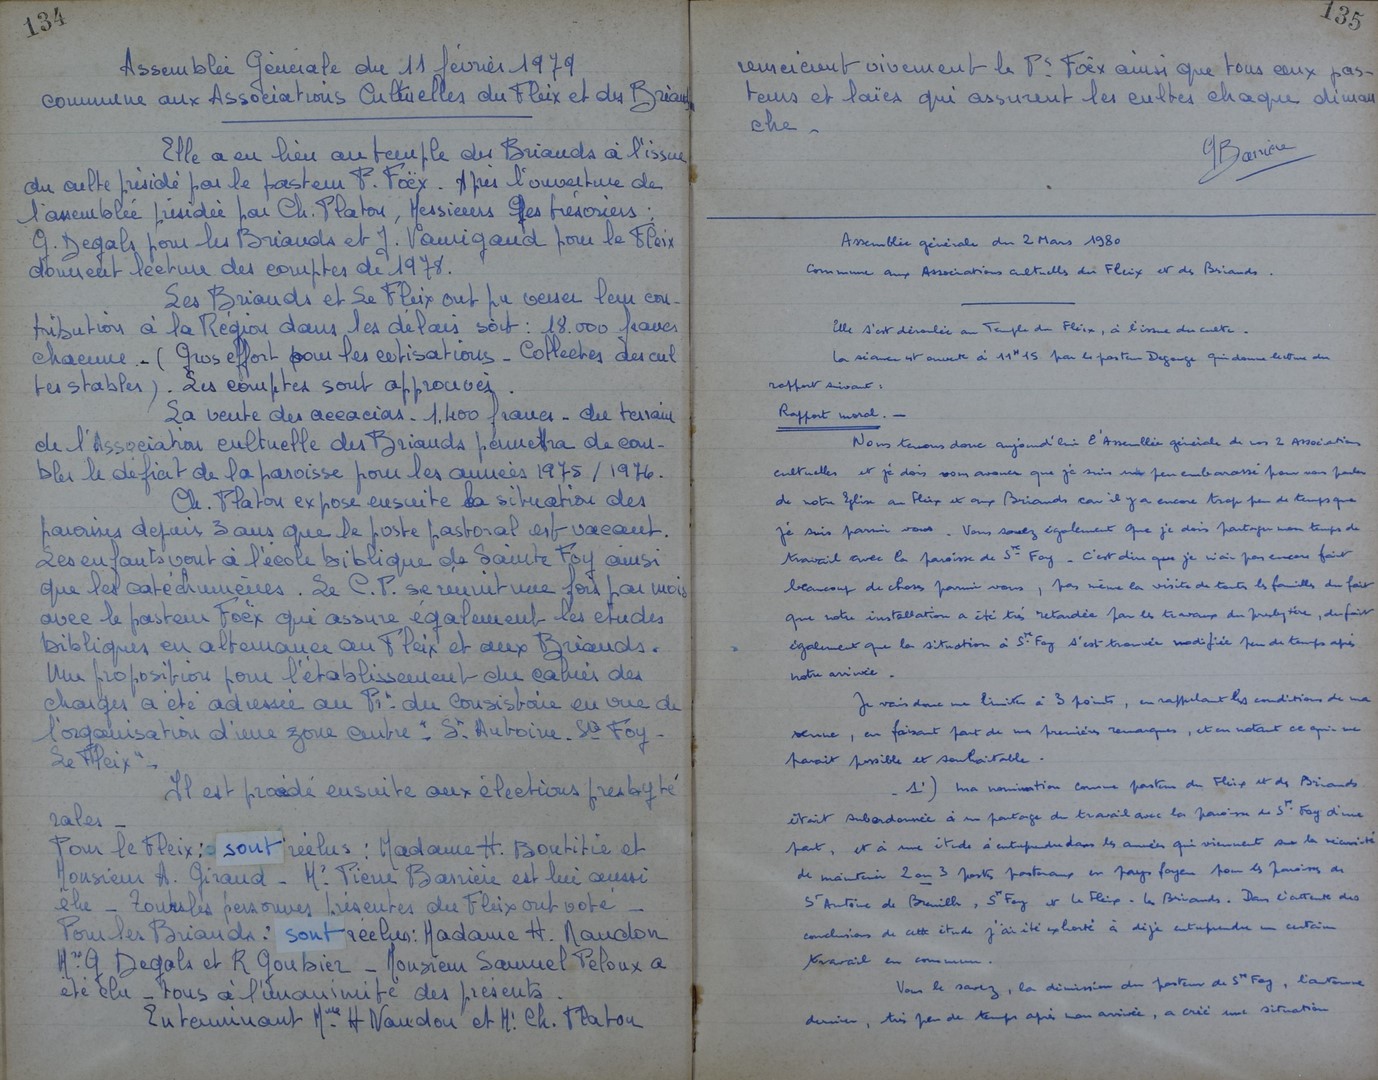 134
Assemblée Générale du 11 février 1979
commune aux Associations Cultuelles du Fleix et des Briands
Elle a eu lieu au temple des Briands à l'issue
du culte présidé par le pasteur P. Foëx. Après l'ouverture de
l'assemblée présidée par Ch. Platon, Messieurs les trésoriers :
G. Degals pour les Briands et J. Vaurigaud pour le Fleix
donnent lecture des comptes de 1978.
Les Briands et Le Fleix ont pu verser leur con-
tribution à la Région dans les délais soit : 18.000 francs
chacune - ( Gros effort pour les cotisations - Collectes des cul
tes stables ). Les comptes sont approuvés .
La vente des accacias - 1.400 francs - du terrain
de l'Association cultuelle des Briands permettra de com-
bler le déficit de la paroisse pour les années 1975 / 1976.
Ch. Platon expose ensuite la situation des
paroisses depuis 3 ans que le poste pastoral est vacant.
Les enfants vont à l'école biblique de Sainte Foy ainsi
que les catéchumènes . Le C.P. se réunit une fois par mois
avec le pasteur Foëx qui assure également les études
bibliques en alternance au Fleix et aux Briands.
Une proposition pour l'établissement du cahier des
charges a été adressée au Pt du Consistoire en vue de
l'organisation d'une zone entre : St Antoine - Ste Foy -
Le Fleix" -
Il est procédé ensuite aux élections presbyté
rales -
Pour le Fleix : sont réélus : Madame H. Boutitié et
Monsieur A. Giraud - Mr Pierre Barrière est lui aussi
élu - Toutes les personnes présentes du Fleix ont voté -
Pour les Briands : sont réélus : Madame H. Naudon
Mrs G Degals et R Goubier - Monsieur Samuel Peloux a
été élu - tous à l'unanimité des présents .
En terminant Mme H Naudon et Mr Ch. Platon
135
remercient vivement le Pr Foëx ainsi que tous ceux pas-
teurs et laïcs qui assurent les cultes chaque diman
che -
Barrière
Assemblée générale du 2 Mars 1980
Commune aux Associations cultuelles du Fleix et des Briands .
Elle s'est déroulée au Temple du Fleix, à l'issue du culte .
La séance est ouverte à 11H15 par le pasteur qui donne lecture du
rapport suivant :
Rapport moral . -
Nous tenons donc aujourd'hui l'Assemblée générale de nos 2 Associations
cultuelles et je dois vous avouer que je suis un peu embarassé pour vous parler
de notre Eglise au Fleix et aux Briands car il y a encore trop peu de temps que
je suis parmi vous . Vous savez également que je dois partager mon temps de
travail avec la paroisse de Ste Foy - C'est dire que je n'ai pas encore fait
beaucoup de choses parmi vous , pas même la visite de toutes les familles du fait
que notre installation a été très retardée par les travaux du presbytère , du fait
également que la situation à Ste Foy s'est trouvée modifiée peu de temps après
notre arrivée .
Je vais donc me limiter à 3 points , en rappelant les conditions de ma
venue , en faisant part de mes premières remarques , et en notant ce qui me
parait possible et souhaitable .
- 1°) ma nomination comme pasteur du Fleix et des Briands
était subordonnée à un partage du travail avec la paroisse de Ste Foy d'une
part , et à une étude à entreprendre dans les années qui viennent sur la nécessité
de maintenir 2 ou 3 postes pastoraux en pays foyen pour les paroisses de
St Antoine de Breuilh , Ste Foy et le Fleix - les Briands . Dans l'attente des
conclusions de cette étude j'ai été exhorté à déjà entreprendre un certain
travail en commun .
Vous le savez , la démission du pasteur de Ste Foy , l'automne
dernier , très peu de temps après mon arrivée , a créé une situation